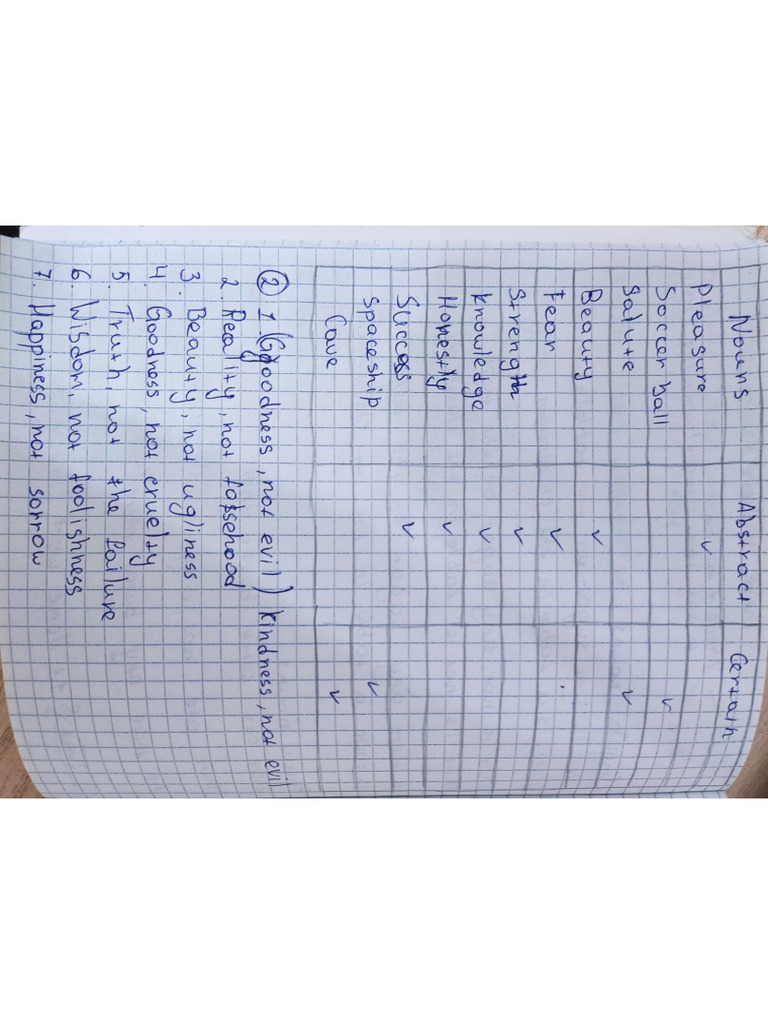 Nouns Abstract Certain
Pleasure ✓
Soccer ball ✓
Salute ✓
Beauty ✓
Fear ✓
Strength ✓
Knowledge ✓
Honestly ✓
Success ✓
Spaceship ✓
Cave ✓
② 1. Goodness, not evil) kindness, not evil
2. Reality, not falsehood
3. Beauty, not ugliness
4. Goodness, not cruelty
5. Truth, not the failure
6. Wisdom, not foolishness
7. Happiness, not sorrow